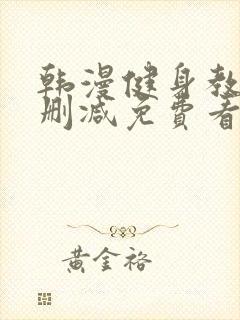 韩漫健身教
删减免费看
黄金裕